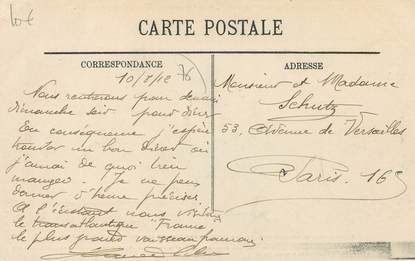 10€
CARTE POSTALE
CORRESPONDANCE
ADRESSE
10/8/12
76
Nous rentrerons pour demain
dimanche soir pour dîner
En conséquence j'espère
trouver un bon dîner où
j'aurai de quoi bien
manger. Je ne peux
donner d'heure précises.
A l'instant nous visitons
le transatlantique "France"
le plus grand vaisseau français
Monsieur et Madame
Schutz
53. Avenue de Versailles
Paris. 16e